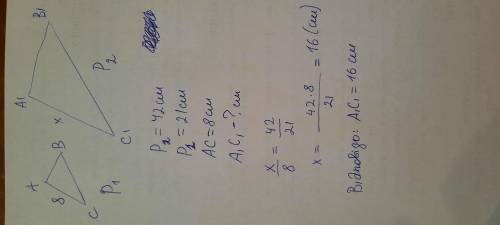 A B 8 C P₁
A₁ B₁ x C₁ P₂
P₂ = 42 см
P₁ = 21 см
AC = 8 см
A₁C₁ - ? см
x/8 = 42/21
x = 42·8/21 = 16 (см)
Відповідь: A₁C₁ = 16 см